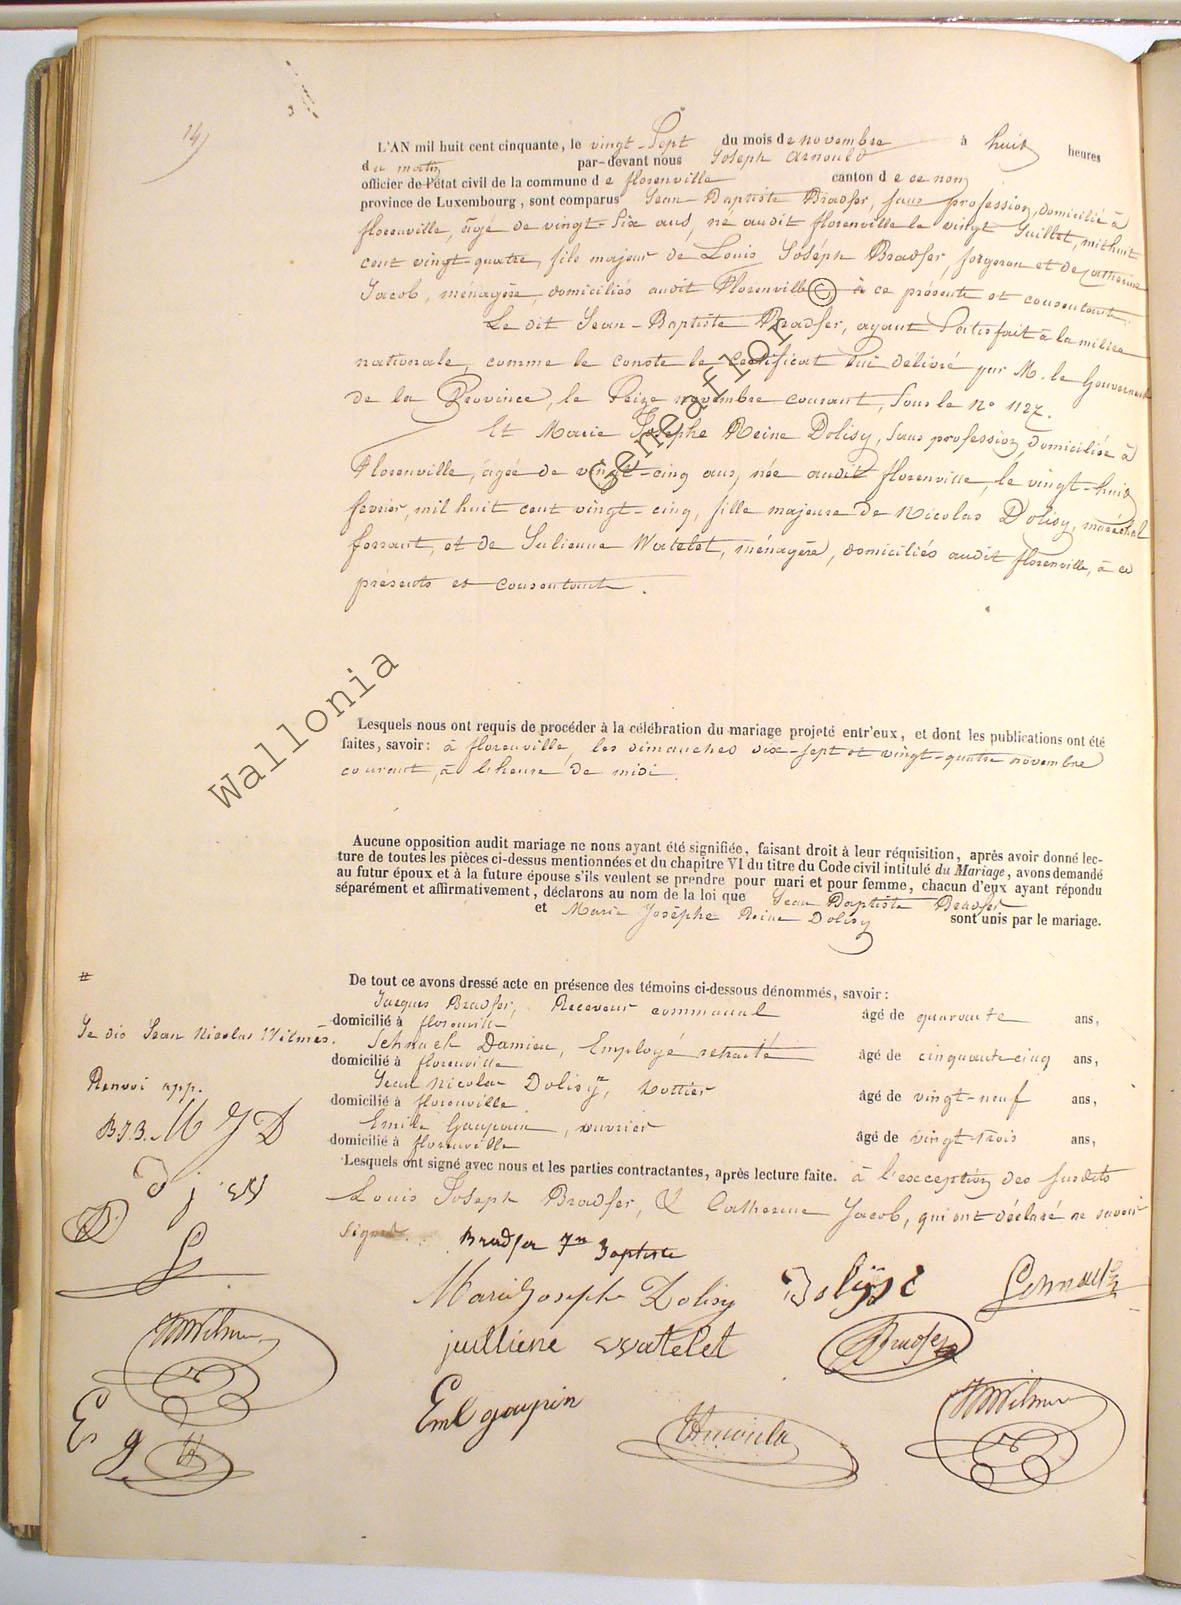 14
L'AN mil huit cent cinquante, le vingt-Sept du mois de novembre à huit heures
du matin par-devant nous Joseph Arnould
officier de l'état civil de la commune de florenville canton de ce nom
province de Luxembourg, sont comparus Jean Baptiste Bradfer, sans profession, domicilié à
florenville, âgé de vingt-Six ans, né audit florenville le vingt Juillet, mil huit
cent vingt-quatre, fils majeur de Louis Joséph Bradfer, forgeron et de Catherine
Jacob, ménagère, domiciliés audit Florenville, à ce présents et consentants.
Le dit Jean-Baptiste Bradfer, ayant Satisfait à la milice
nationale, comme le conste le certificat lui délivré par M. le Gouverneur
de la Province, le Seize novembre courant, Sous le No 1127.
Et Marie Josephe Reine Dolisy, Sans profession, domiciliée à
Florenville, âgée de vingt-cinq ans, née audit florenville, le vingt-huit
fevrier, mil huit cent vingt-cinq, fille majeure de Nicolas Dolisy, maréchal
ferrant, et de Julienne Watelet, ménagère, domiciliés audit florenville, à ce
présents et consentants.
Lesquels nous ont requis de procéder à la célébration du mariage projeté entr'eux, et dont les publications ont été
faites, savoir: à florenville, les dimanches dix-sept et vingt-quatre novembre
courant, à l'heure de midi.
Aucune opposition audit mariage ne nous ayant été signifiée, faisant droit à leur réquisition, après avoir donné lec-
ture de toutes les pièces ci-dessus mentionnées et du chapitre VI du titre du Code civil intitulé du Mariage, avons demandé
au futur époux et à la future épouse s'ils veulent se prendre pour mari et pour femme, chacun d'eux ayant répondu
séparément et affirmativement, déclarons au nom de la loi que Jean Baptiste Bradfer
et Marie Josèphe Reine Dolisy sont unis par le mariage.
De tout ce avons dressé acte en présence des témoins ci-dessous dénommés, savoir:
Jacques Bradfer, Receveur communal âgé de quarante ans,
domicilié à florenville
Schnach Damien, Employé retraité âgé de cinquante cinq ans,
domicilié à florenville
Jean Nicolas Dolisy #, bottier âgé de vingt-neuf ans,
domicilié à florenville
Emile Gaupain, ouvrier âgé de vingt-trois ans,
domicilié à florenville
Lesquels ont signé avec nous et les parties contractantes, après lecture faite. à l'exception des susdits
Louis Joseph Bradfer, & Catherine Jacob, qui ont déclaré ne savoir
signer.
#
Je dis Jean Nicolas Wilmes.
Renvoi app.
B J B. M J D
D j. W
D
S
JNWilmes
E g A
Bradfer Jn Baptiste
Marie Joseph Dolisy Dolisy Schnach
julliene watelet Bradfer
Eml gaupin JArnould JNWilmes
Wallonia
Geneaflor ©